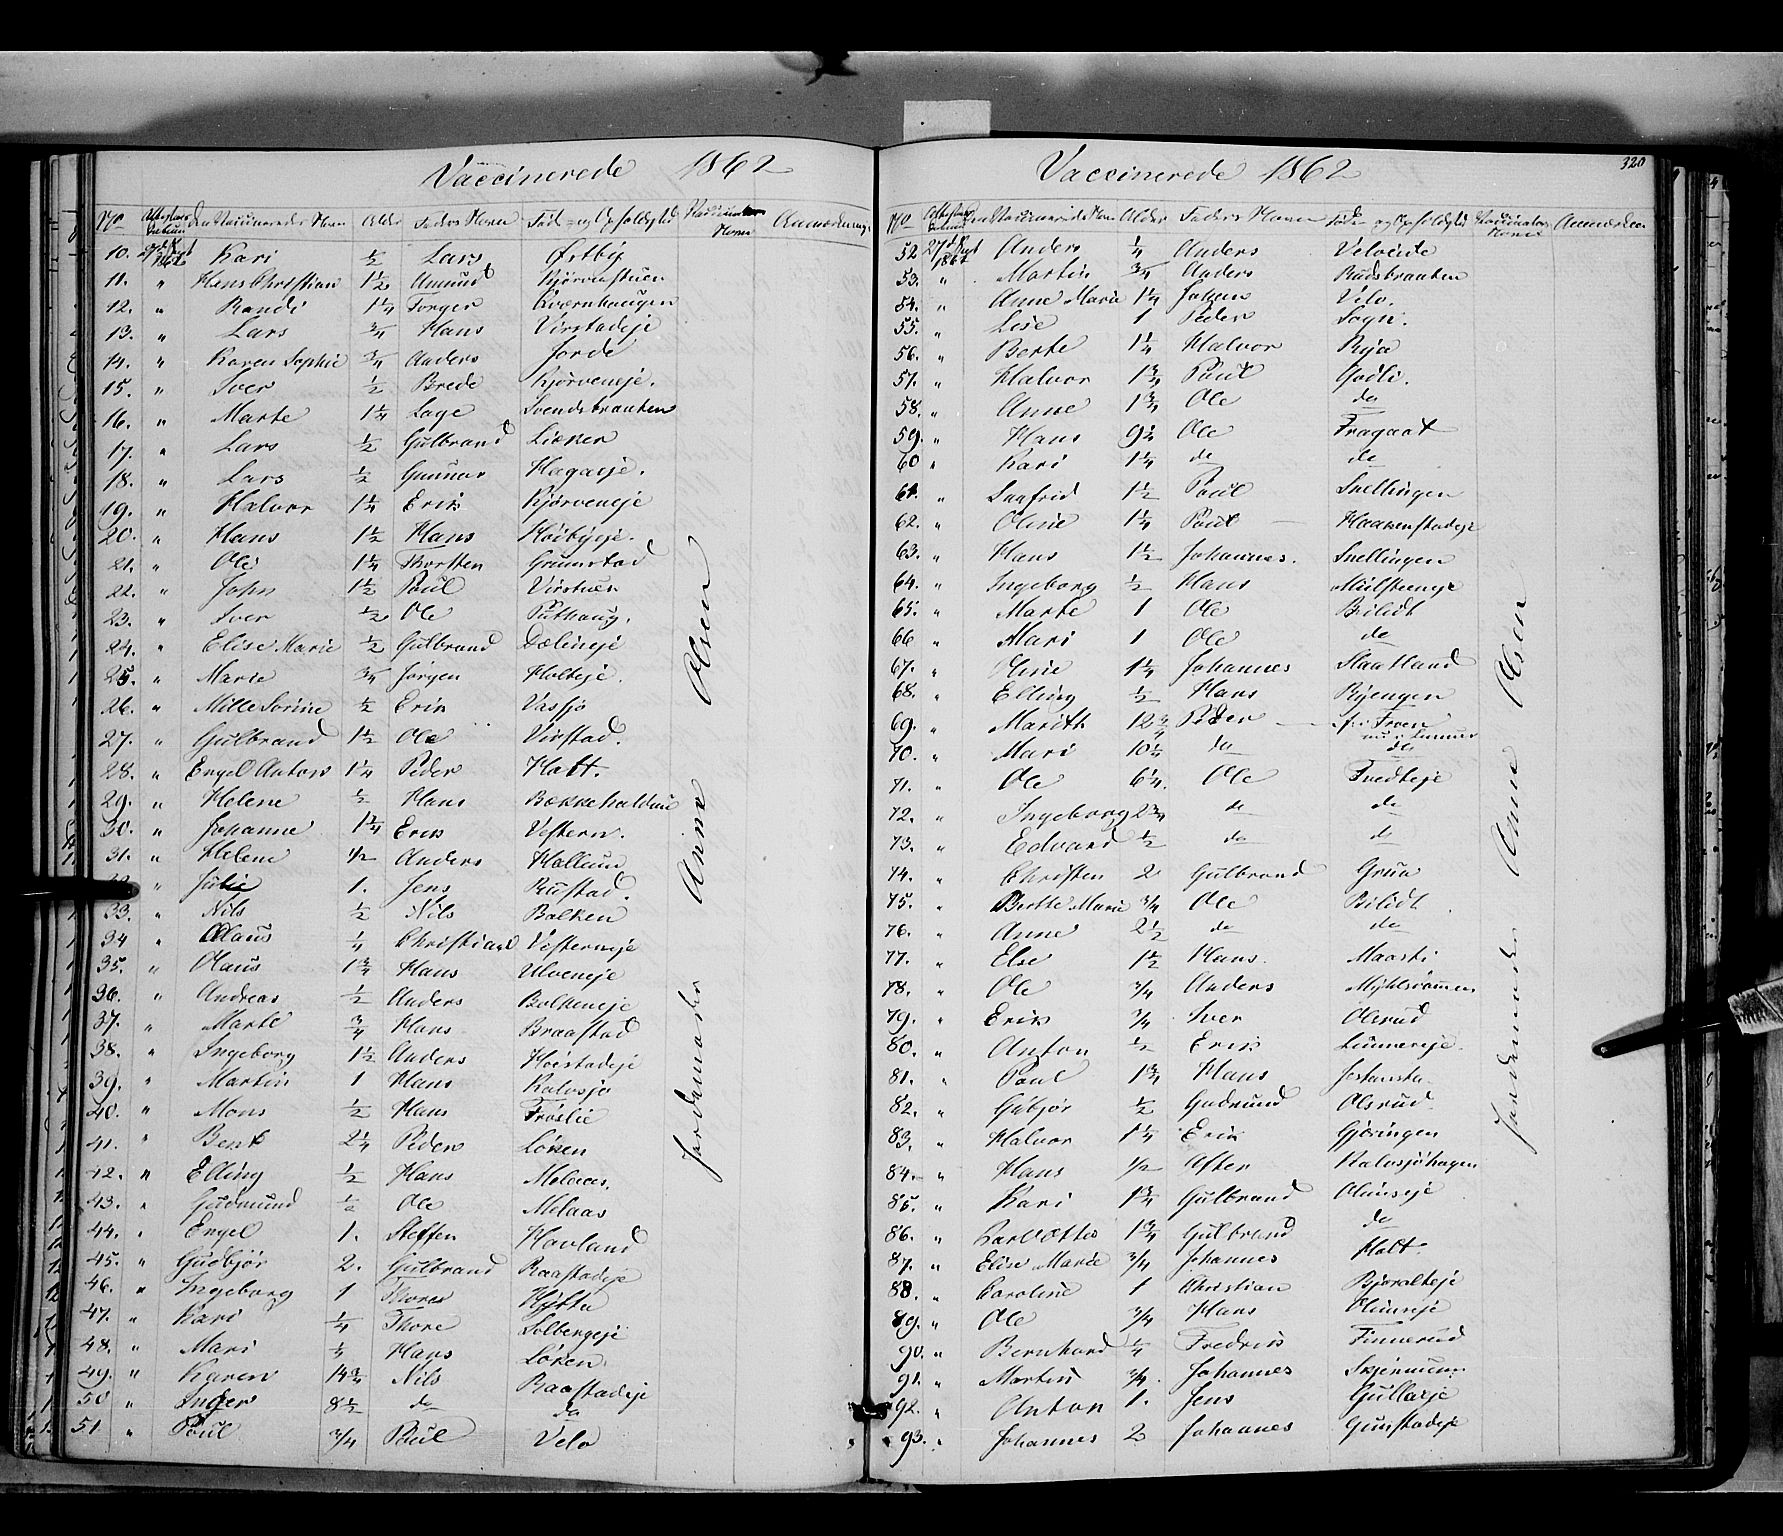 Vaccinerede 1862
No Attestens Datum Den Vaccineredes Navn Alder Faders Navn Føde- og Opholdssted Vaccinators Navn Anmærkning
10. 27de Augt 1862 Kari 1/2 Lars Østby
11. " Hans Christian 1 1/2 Amund Kjørvenstuen
12. " Randi 1 1/4 Torger Kværnhaugen
13. " Lars 3/4 Hans Virstadeje
14. " Karen Sophie 3/4 Anders Jorde
15. " Iver 1/2 Brede Kjørveneje.
16. " Marte 1 1/4 Lage Svendsbraaten
17. " Lars 1/2 Gulbrand Lieker
18. " Lars 1/2 Gunnar Hagaeje.
19. " Halvor 1 1/4 Erik Kjørveneje
20. " Hans 1 1/2 Hans Høibyeje.
21. " Ole 1 1/4 Thorsten Grimstad
22. " John 1 1/2 Poul Virstuen
23. " Iver 1/2 Ole Puthaug.
24. " Elise Marie 1/2 Gulbrand Dælineje
25. " Marie 3/4 Jørgen Holteje.
26. " Mille Sorine 1/2 Erik Vassjø
27. " Gulbrand 1 1/2 Ole Virstad.
28. " Engel Anton 1 1/4 Peder Holt.
29. " Helene 1/2 Hans Bækkehaldum
30. " Johanne 1 1/4 Erik Vestern.
31. " Helene 1/2 Anders Hallum
" Julie 1. Jens Rustad.
33. " Nils 1/2 Nils Balken
34 " Olaus 1/4 Christian Vesterneje
35. " Olaus 1 3/4 Hans Ulveneje
36. " Andreas 1/2 Anders Balkeneje
37. " Marte 3/4 Hans Braastad
38. " Ingeborg 1 1/2 Anders Høistadeje
39. " Martin 1 Hans Kalvsjø
40. " Mons 1/2 Hans Frøslie
41. " Bent 2 1/4 Peder Løken
42. " Elling 1/2 Hans Melaas.
43. " Gudmund 1/2 Ole Melaas
44. " Engel 1. Steffen Hovland
45. " Gudbjør 2. Gulbrand Raastadeje
46. " Ingeborg 1 Thore Hytta
47. " Kari 1/4 Thore Solbergeje
48. " Mari 1/4 Hans Løken
49. " Karen 14 3/4 Nils Raastadeje
50 " Inger 8 1/2 do do
51. " Poul 3/4 Poul Velo
Jordemoder Anne Olsen
320
Vaccinerede 1862
No Attestens Datum Den Vaccineredes Navn Alder Faders Navn Føde- og Opholdssted Vaccinators Navn Anmærkn
52 27de Augt 1862 Anders 1/4 Anders Veloeie
53. " Martin 3/4 Anders Rudsbraaten
54. " Anne Marie 1 1/4 Johan Velo.
55. " Lise 1 Peder Sogn.
56. " Berte 1 1/4 Halvor Rya
57. " Halvor 1 3/4 Poul Godli.
58. " Anne 1 3/4 Ole do
59. " Hans 9 1/4 Ole Fragaat
60 " Kari 1 1/4 do do
61. " Laafrid 1 1/2 Poul Snellingen
62. " Oline 1 1/4 Poul Haakenstadeje
63. " Hans 1 1/2 Johannes. Snellingen
64. " Ingeborg 1/2 Hans Mulsteneje
65. " Marte 1 Ole Bilidt
66 " Mari 1 Ole do
67. " Oline 1 1/4 Johannes Slaatland
68. " Elling 1/2 Hans Ryengen
69. " Marith 12 3/4 Peder i Froen
70. " Mari 10 1/4 do do
71. " Ole 6 1/4. Ole Tvedteje
72. " Ingeborg 2 3/4 do do
73. " Edvard 1/2 do do
74. " Christen 2 Gulbrand Grua
75. " Berthe Marie 3/4 Ole Bilidt
76. " Anne 2 1/2 do do
77. " Else 1 1/2 Hans. Maaski
78. " Ole 3/4 Anders
79. " Erik 3/4 Iver Olsrud
80. " Anton 1/2 Erik Linnereje.
81. " Poul 1 3/4 Hans
82. " Gubjør 1/2 Gudmund Olsrud.
83. " Halvor 1 1/4 Erik Gjøringen
84. " Hans 1/2 Kalvsjøhagen
85. " Kari 1 3/4 Gulbrand Olimseje
86. " Karl Otto 1 3/4 Gulbrand do
87. " Elise Marie 3/4 Johannes Holt.
88 " Caroline 1 Christian Bjøralteje
89. " Ole 3/4 Hans Olimseje
90. " Bernhard 1/4 Fredrik Finnerud
91. " Martin 3/4. Johannes Skjervum
92. " Anton 1. Jens Gullaeje
93. " Johannes 2 Johannes Grinstadeje
Jordemoder Anne Olsen